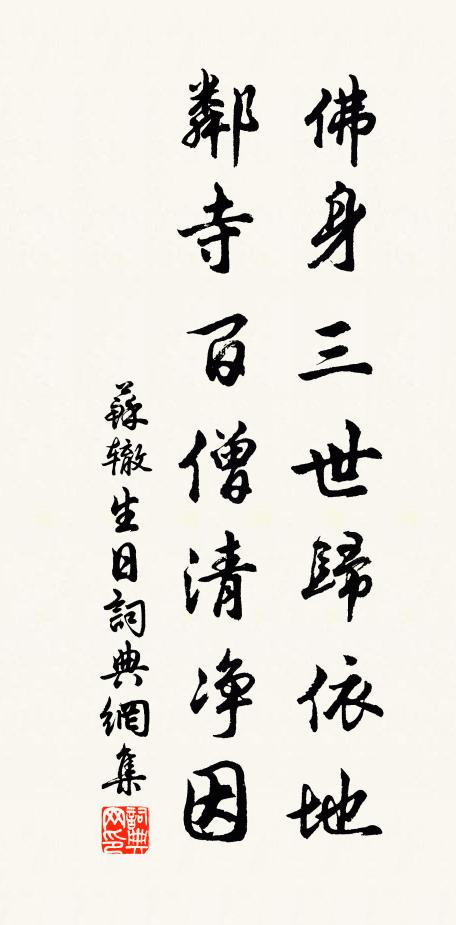 佛身三世歸依地
鄰寺百僧清净因
蘇辙生日詞典網集
詞典网印